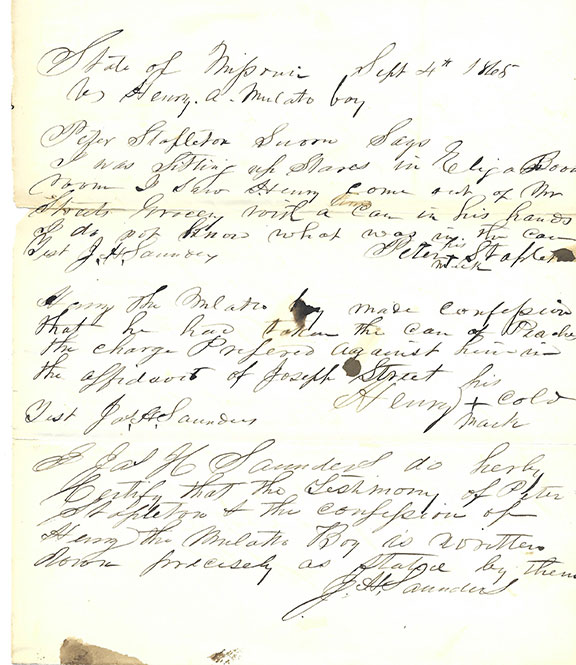 State of Missouri Sept 4th 1865
vs Henry. a. Mulato boy
Peter Stapleton Sworn Says
I was Sitting up Stares in Eliga Boon
room I Saw Henry come out of Mr
Streets Grocery with a can in his hands
I do not know what was in the can
Test J. H. Saunders Peter his + mark Stapleton
Henry the Mulatto boy made confession
that he had taken the can of Peaches
the charge Prefered against him in
the affidavit of Joseph Street
Henry his + mark Cold
Test Jas. H. Saunders
I Jas H Saunders do herby
Certify that the Testimony of Peter
Stapleton & the confession of
Henry the Mulatto Boy as written
down precisely as stated by them
J. H. Saunders